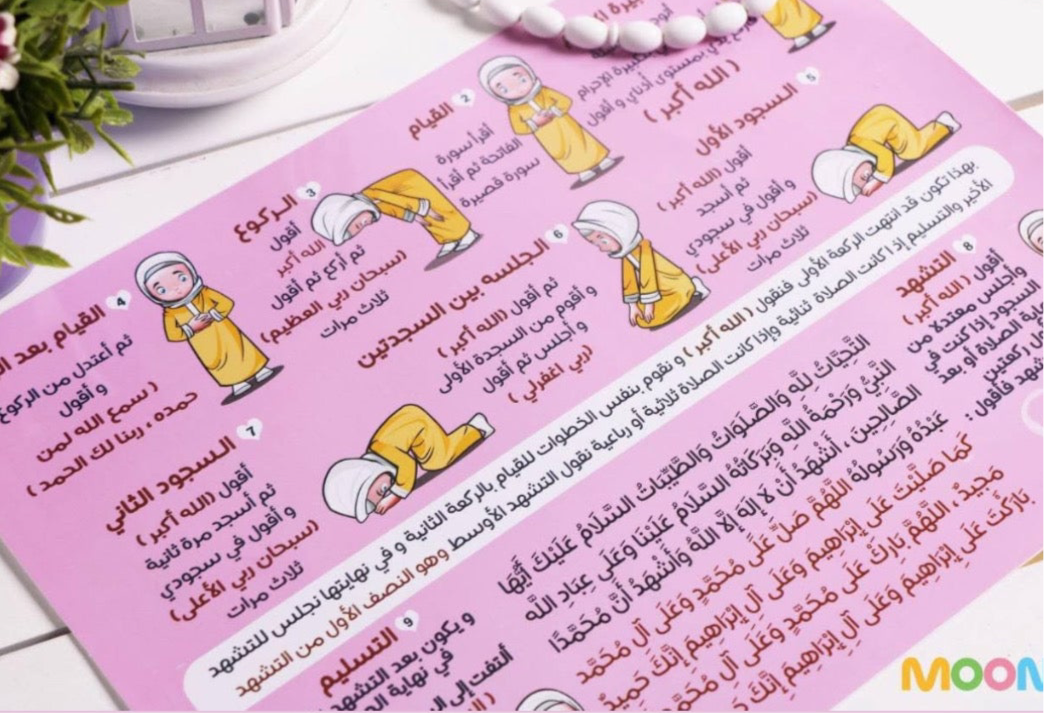 ( الله أكبر )
2
القيام
أقرأ سورة
الفاتحة ثم أقرأ
سورة قصيرة
3
الركوع
أقول
الله أكبر
ثم أركع ثم أقول
(سبحان ربي العظيم)
ثلاث مرات
4
القيام بعد
ثم أعتدل من الركوع
و أقول
( سمع الله لمن
حمده ، ربنا لك الحمد )
5
السجود الأول
أقول (الله أكبر )
ثم أسجد
و أقول في سجودي
(سبحان ربي الأعلى)
ثلاث مرات
6
الجلسه بين السجدتين
ثم أقول (الله أكبر )
و أقوم من السجدة الأولى
و أجلس ثم أقول
(ربي اغفرلي )
7
السجود الثاني
أقول (الله أكبر )
ثم أسجد مرة ثانية
و أقول في سجودي
(سبحان ربي الأعلى)
ثلاث مرات
بهذا تكون قد انتهت الركعة الأولى فنقول ( الله أكبر ) و نقوم بنفس الخطوات للقيام بالركعة الثانية و في نهايتها نجلس للتشهد
الأخير والتسليم إذا كانت الصلاة ثنائية وإذا كانت الصلاة ثلاثية أو رباعية نقول التشهد الأوسط وهو النصف الأول من التشهد
8
التشهد
أقول ( الله أكبر )
وأجلس معتدلة من
السجود إذا كنت في
الصلاة أو بعد
ركعتين
فأقول :
التَّحِيَّاتُ لِلَّهِ وَالصَّلَوَاتُ وَالطَّيِّبَاتُ السَّلَامُ عَلَيْكَ أَيُّهَا
النَّبِيُّ وَرَحْمَةُ اللَّهِ وَبَرَكَاتُهُ السَّلَامُ عَلَيْنَا وَعَلَى عِبَادِ اللَّهِ
الصَّالِحِينَ ، أَشْهَدُ أَنْ لَا إِلَهَ إِلَّا اللَّهُ وَأَشْهَدُ أَنَّ مُحَمَّدًا
عَبْدُهُ وَرَسُولُهُ اللَّهُمَّ صَلِّ عَلَى مُحَمَّدٍ وَعَلَى آلِ مُحَمَّد
كَمَا صَلَّيْتَ عَلَى إِبْرَاهِيمَ وَعَلَى آلِ إِبْرَاهِيمَ إِنَّكَ حَمِيدٌ
مَجِيدٌ اللَّهُمَّ بَارِكْ عَلَى مُحَمَّدٍ وَعَلَى آلِ
بَارَكْتَ عَلَى إِبْرَاهِيمَ وَعَلَى آلِ إِبْرَاهِيمَ إِنَّكَ
9
التسليم
و يكون بعد التشهد
في نهاية
ألتفت إلى
MOON